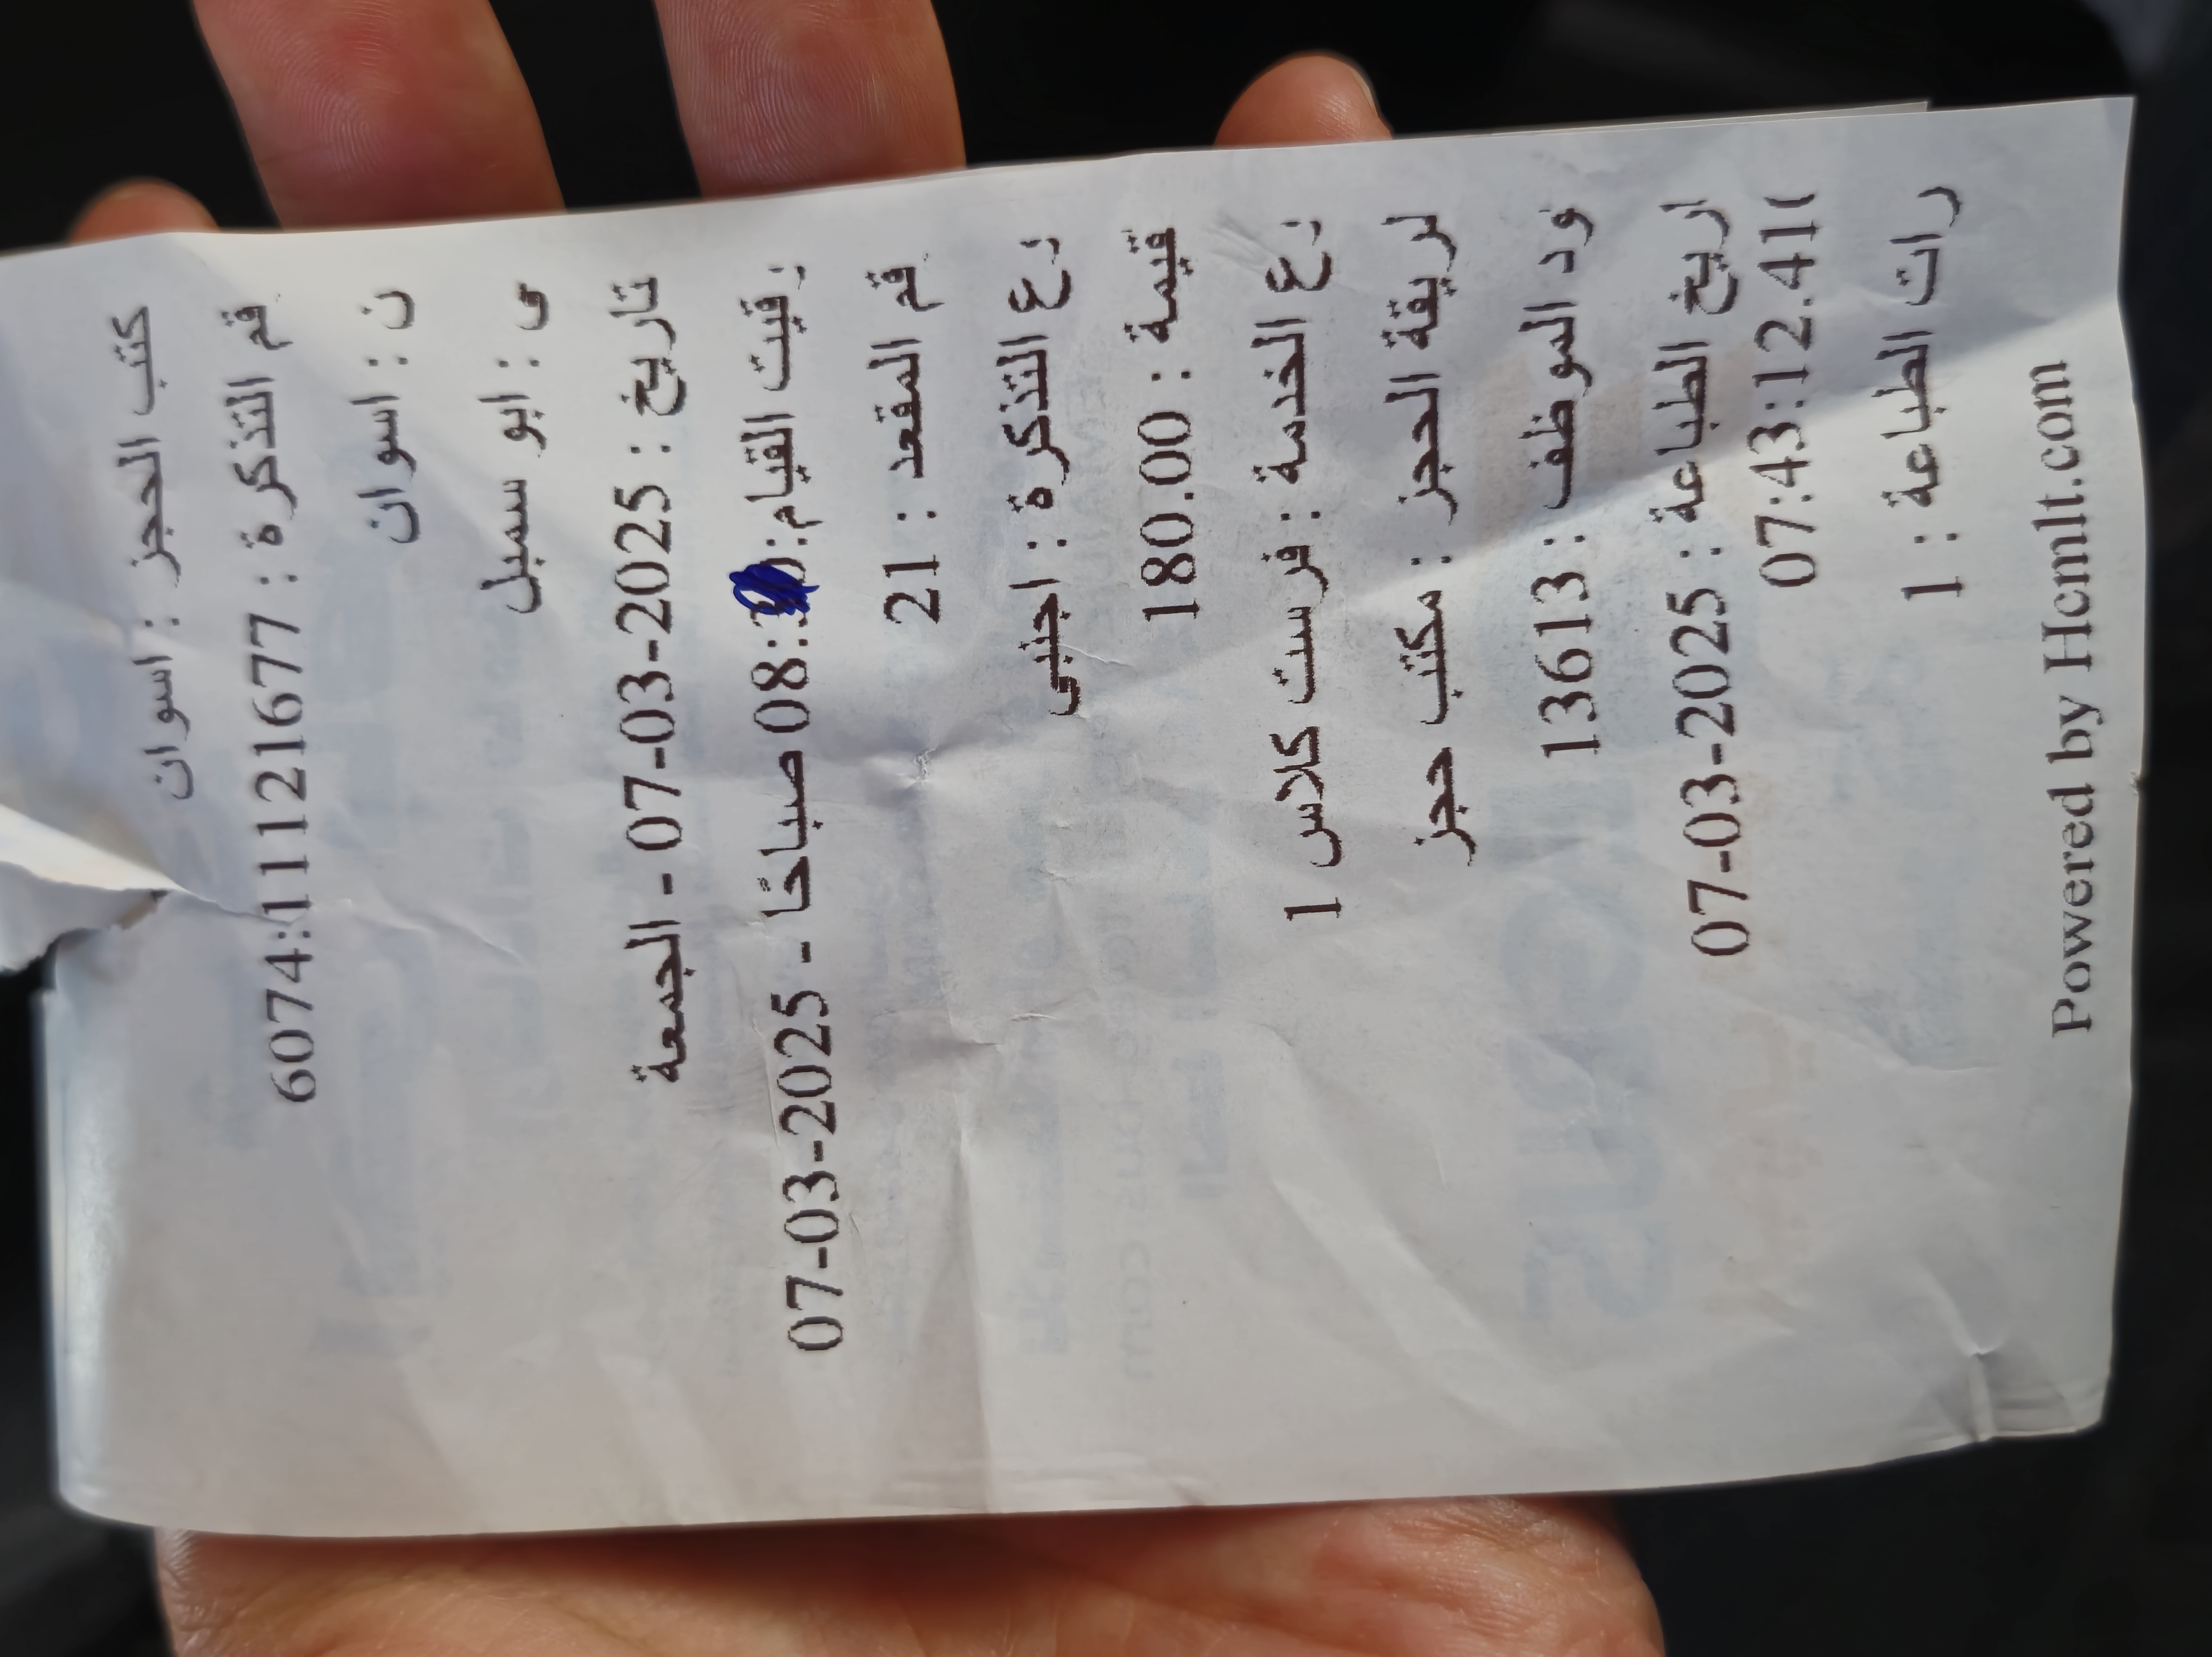 كتب الحجز : اسوان
قم التذكرة : 6074:111121677
ن : اسوان
ى : ابو سمبل
تاريخ : 07-03-2025 - الجمعة
قيت القيام: 08: صباحًا - 07-03-2025
قم المقعد : 21
ع التذكرة : اجنبى
قيمة : 180.00
ع الخدمة : فرست كلاس 1
ريقة الحجز : مكتب حجز
ود الموظف : 13613
اريخ الطباعة : 07-03-2025
07:43:12.41
رات الطباعة : 1
Powered by Hcmlt.com